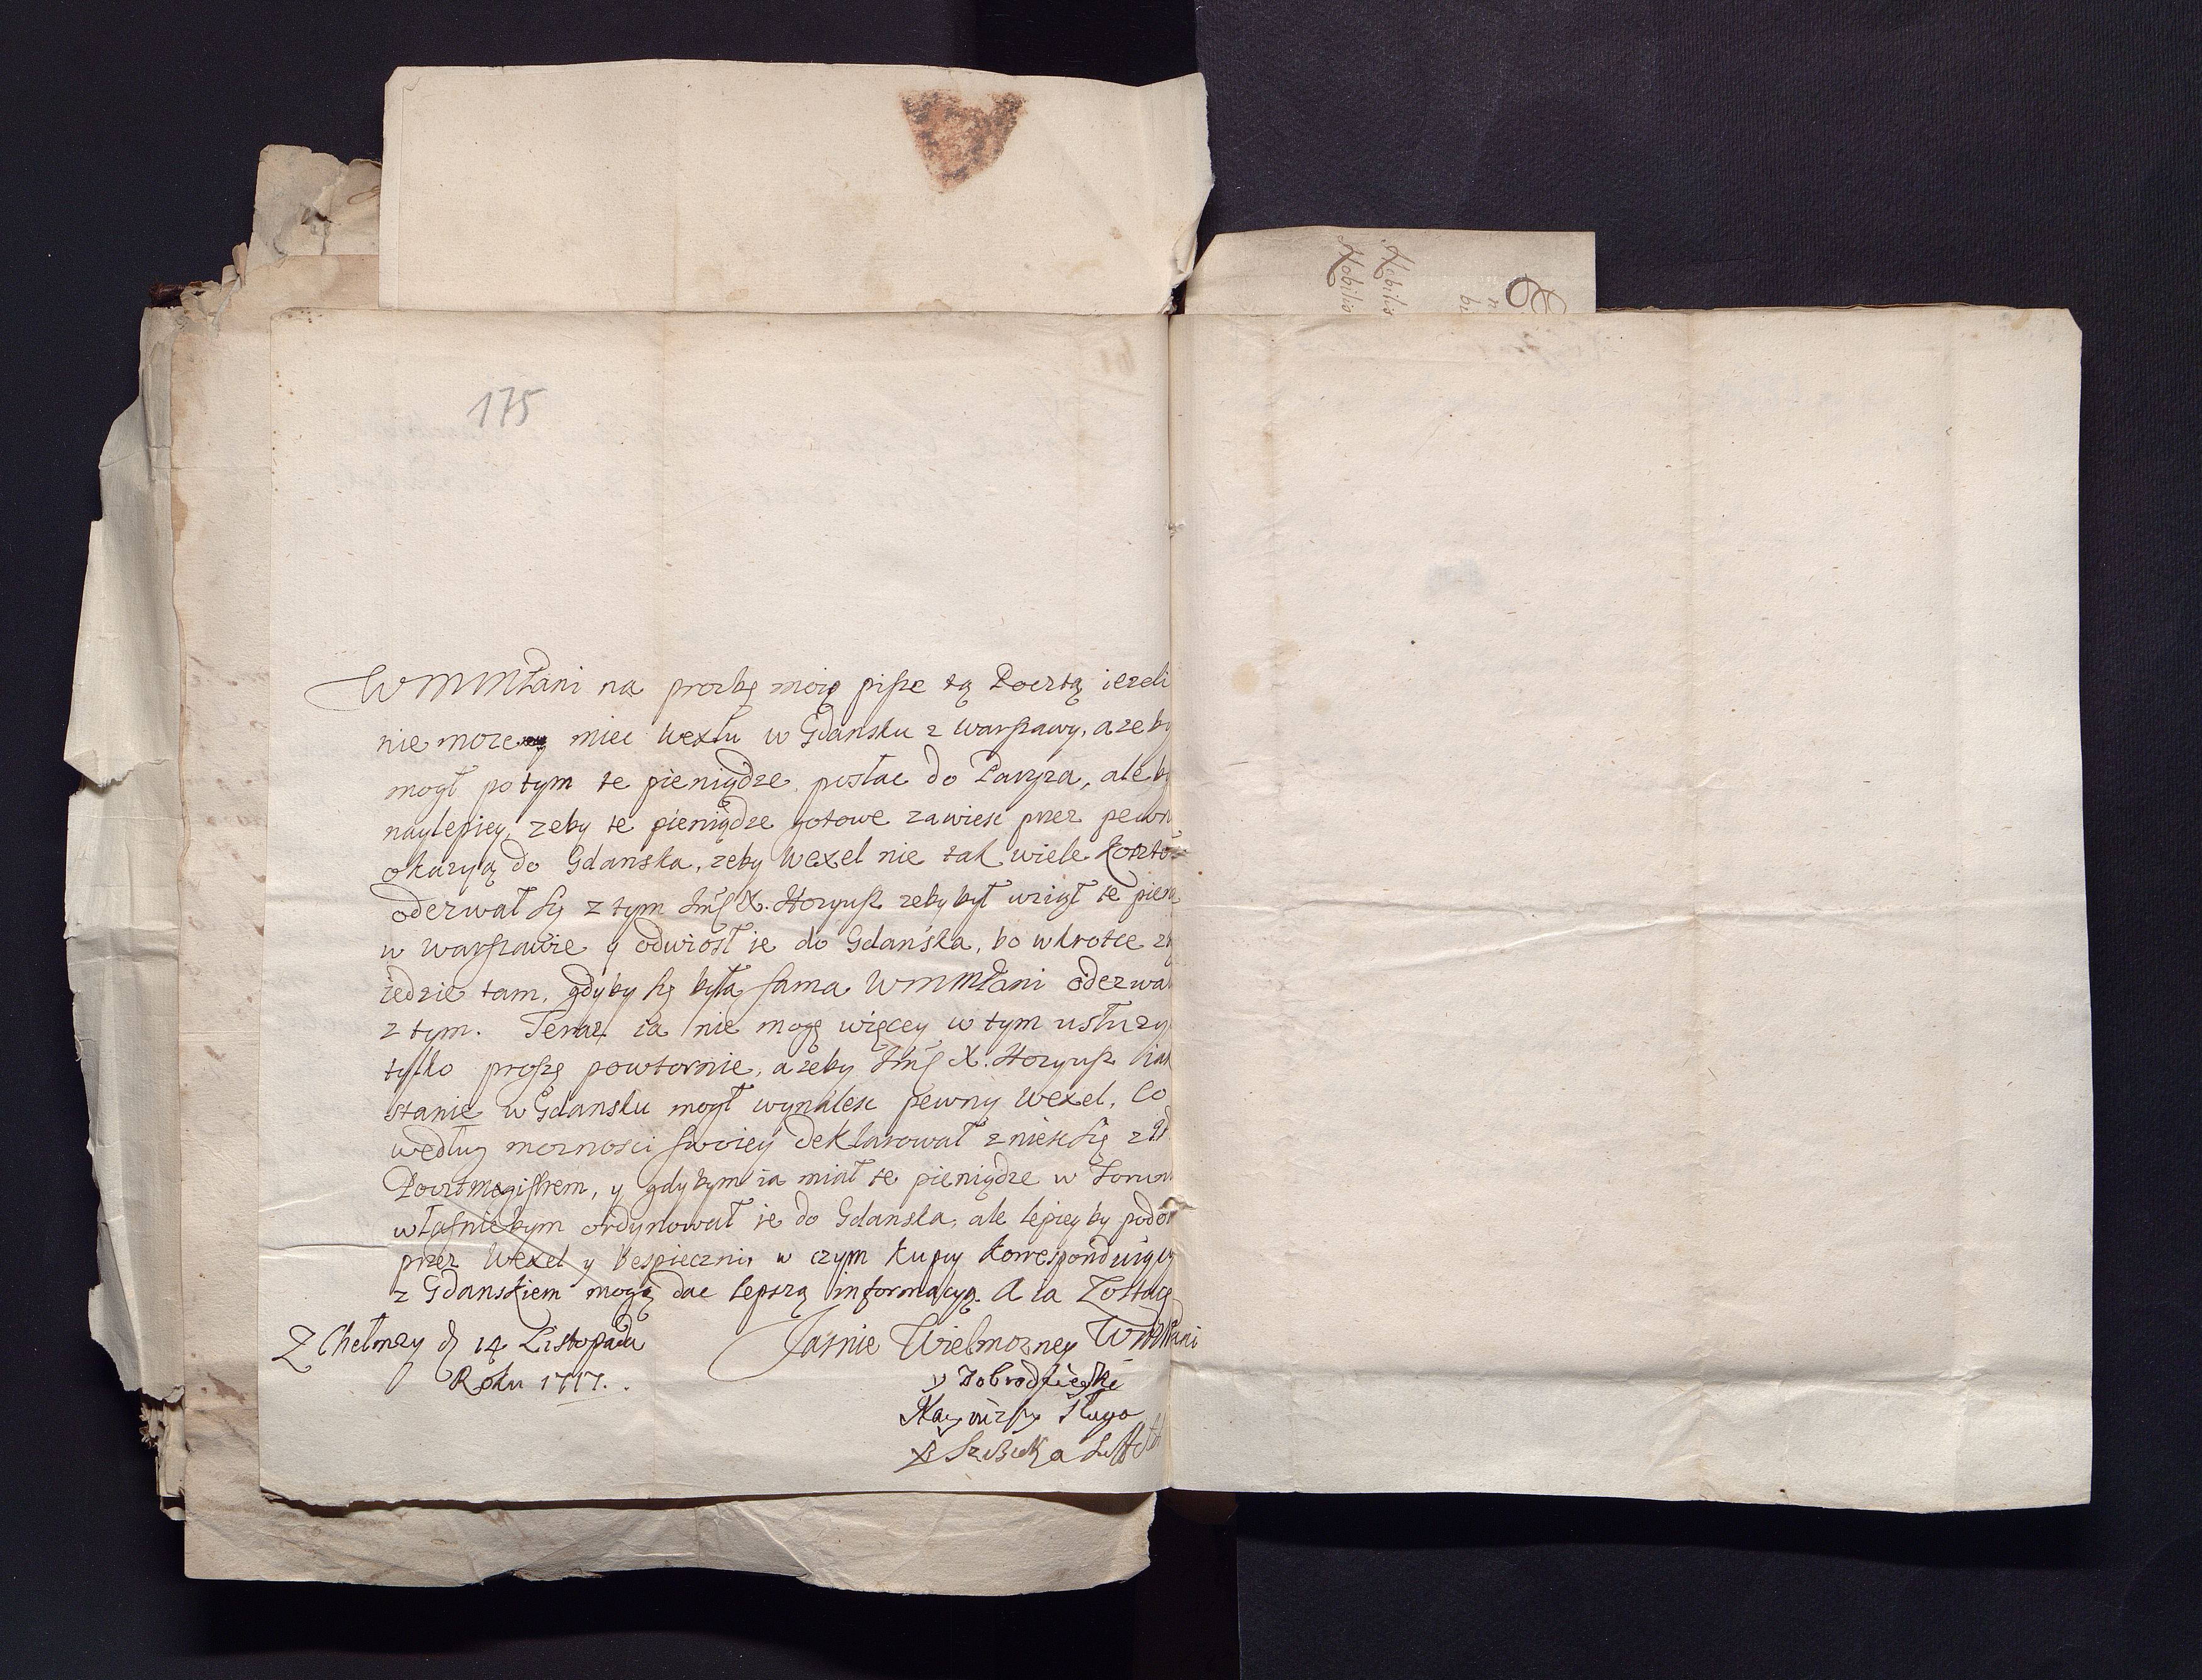 175
WMMPani na prozbę moię piszę tą Pocztą iezeli
nie moze miec wexlu w Gdansku z Warszawy, azeby
mogł potym te pieniądze posłac do Paryza, ale by
naylepiey, zeby te pieniądze gotowe zawiesc przez pewn
okazyą do Gdanska, zeby wexel nie tak wiele koszto
odezwał się z tym Jmć X. Hozyusz zeby był wziął te pien
w Warszawie y odwiosł ie do Gdańska, bo wkrotce
iedzie tam, gdyby się była sama WMMPani odezwał
z tym. Teraz ia nie mogę więcey w tym usłuzy
tylko proszę powtornie, azeby Jmć X. Hozyusz iak
stanie w Gdansku mogł wynalesc pewny wexel, Co
według moznosci swoiey deklarował zniesc się z
Pocztmagistrem, y gdybym ia miał te pieniądze w Torun
własniebym ordynował ie do Gdanska, ale lepiey by podo
przez Wexel y bespieczni, w czym kupcy korresponduiący
z Gdanskiem mogą dac lepszą informacyą. A ia Zostaię
Jasnie Wielmozney WMMPani
Z Chełmzy d 14 Listopada
Roku 1717.
y Dobrodzieyki
Nayniższy sługa
Nobilis
Nobilis